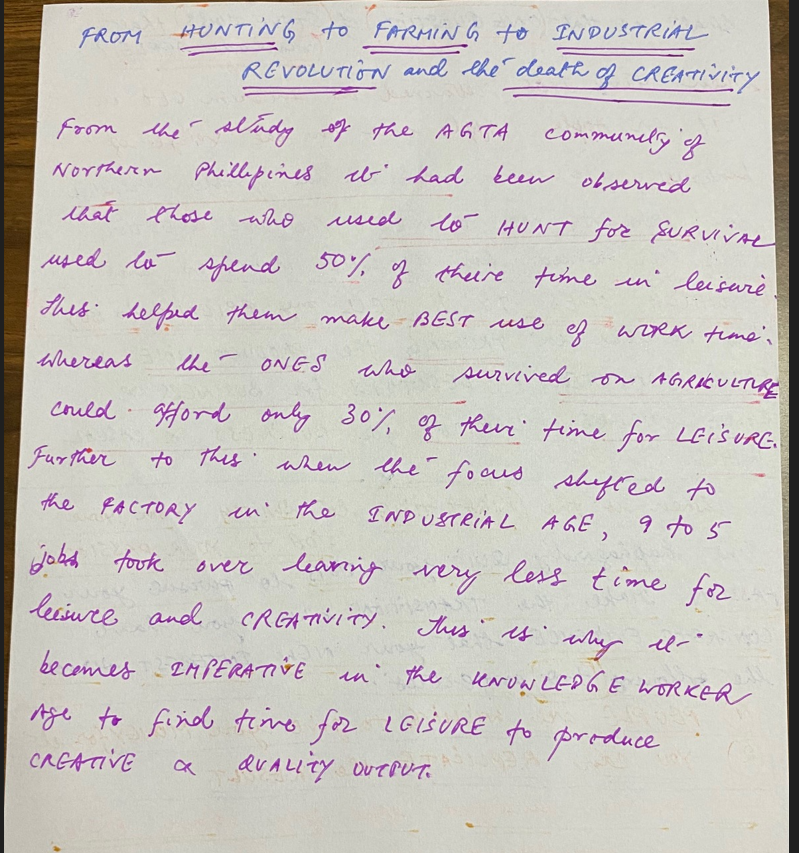 FROM HUNTING to FARMING to INDUSTRIAL
REVOLUTION and the death of CREATIVITY
From the study of the AGTA community of
Northern Phillipines it had been observed
that those who used to HUNT for SURVIVAL
used to spend 50% of their time in leisure.
This helped them make BEST use of WORK time.
whereas the ONES who survived on AGRICULTURE
could afford only 30% of their time for LEISURE.
Further to this when the focus shifted to
the FACTORY in the INDUSTRIAL AGE, 9 to 5
jobs took over leaving very less time for
leisure and CREATIVITY. This is why it
becomes IMPERATIVE in the KNOWLEDGE WORKER
Age to find time for LEISURE to produce
CREATIVE & QUALITY OUTPUT.